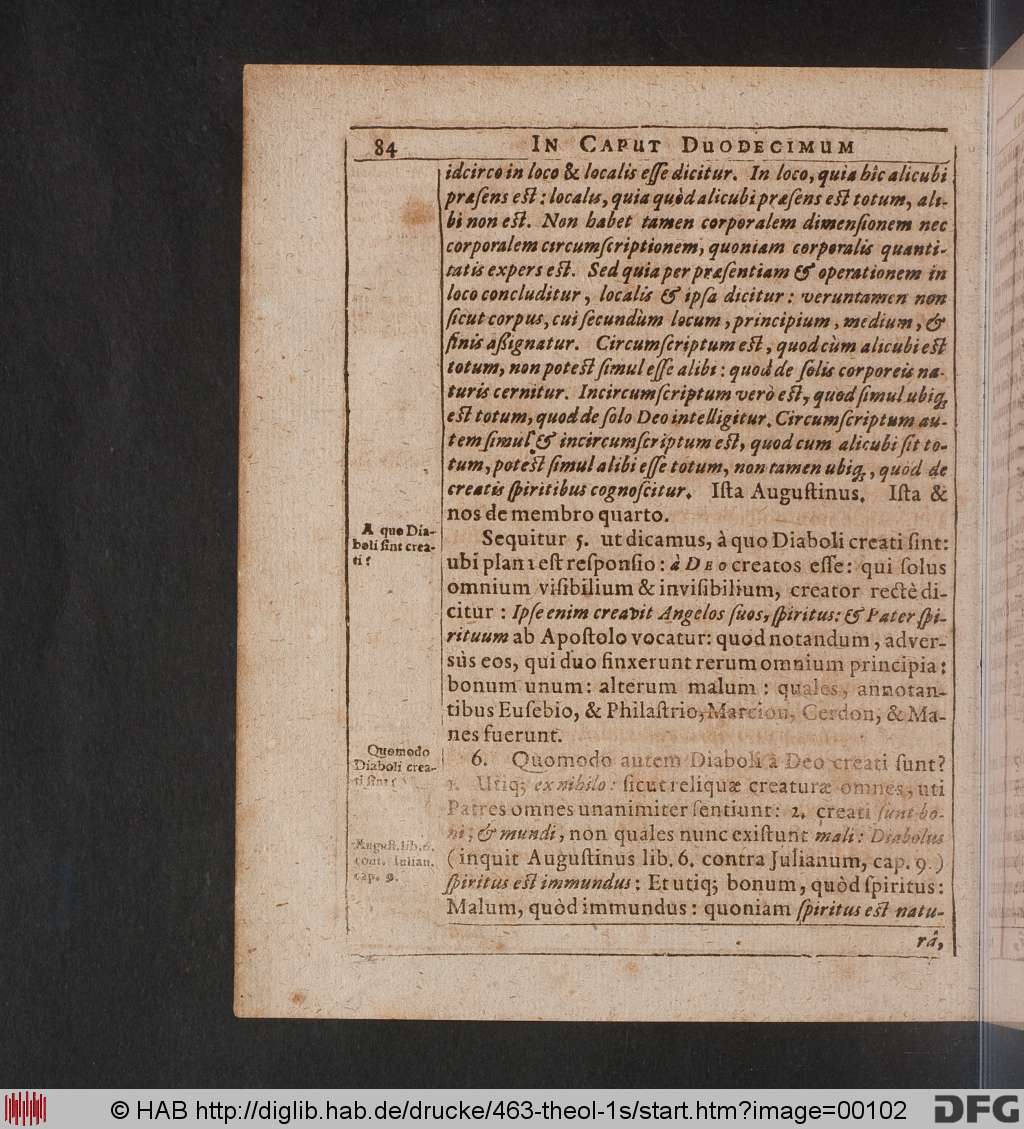 84 IN CAPUT DUODECIMUM
idcirco in loco & localis esse dicitur. In loco, quia hîc alicubi
præsens est: localis, quia quòd alicubi præsens est totum, ali-
bi non est. Non habet tamen corporalem dimensionem nec
corporalem circumscriptionem, quoniam corporalis quanti-
tatis expers est. Sed quia per præsentiam & operationem in
loco concluditur, localis & ipsa dicitur: veruntamen non
sicut corpus, cui secundùm locum, principium, medium, &
finis aßignatur. Circumscriptum est, quod cùm alicubi est
totum, non potest simul esse alibi: quod de solis corporeis na-
turis cernitur. Incircumscriptum verò est, quod simul ubiq;
est totum, quod de solo Deo intelligitur. Circumscriptum au-
tem simul & incircumscriptum est, quod cum alicubi sit to-
tum, potest simul alibi esse totum, non tamen ubiq;, quòd de
creatis spiritibus cognoscitur. Ista Augustinus. Ista &
nos de membro quarto.
A quo Dia-
boli sint crea-
ti?
Sequitur 5. ut dicamus, à quo Diaboli creati sint:
ubi plan1 est responsio: à DEO creatos esse: qui solus
omnium visibilium & invisibilium, creator rectè di-
citur: Ipse enim creavit Angelos suos, spiritus: & Pater spi-
rituum ab Apostolo vocatur: quod notandum, adver-
sùs eos, qui duo finxerunt rerum omnium principia:
bonum unum: alterum malum: quales, annotan-
tibus Eusebio, & Philastrio, Marcion, Cerdon, & Ma-
nes fuerunt.
Quomodo
Diaboli crea-
ti sint?
6. Quomodo autem Diaboli à Deo creati sunt?
1. Utiq; ex nihilo: sicut reliquæ creaturæ omnes, uti
Patres omnes unanimiter sentiunt: 2. creati sunt bo-
ni, & mundi, non quales nunc existunt mali: Diabolus
August. lib. 6.
cont. Iulian.
cap. 9.
(inquit Augustinus lib. 6. contra Julianum, cap. 9.)
spiritus est immundus: Et utiq; bonum, quòd spiritus:
Malum, quòd immundus: quoniam spiritus est natu-
râ,
© HAB http://diglib.hab.de/drucke/463-theol-1s/start.htm?image=00102
DFG